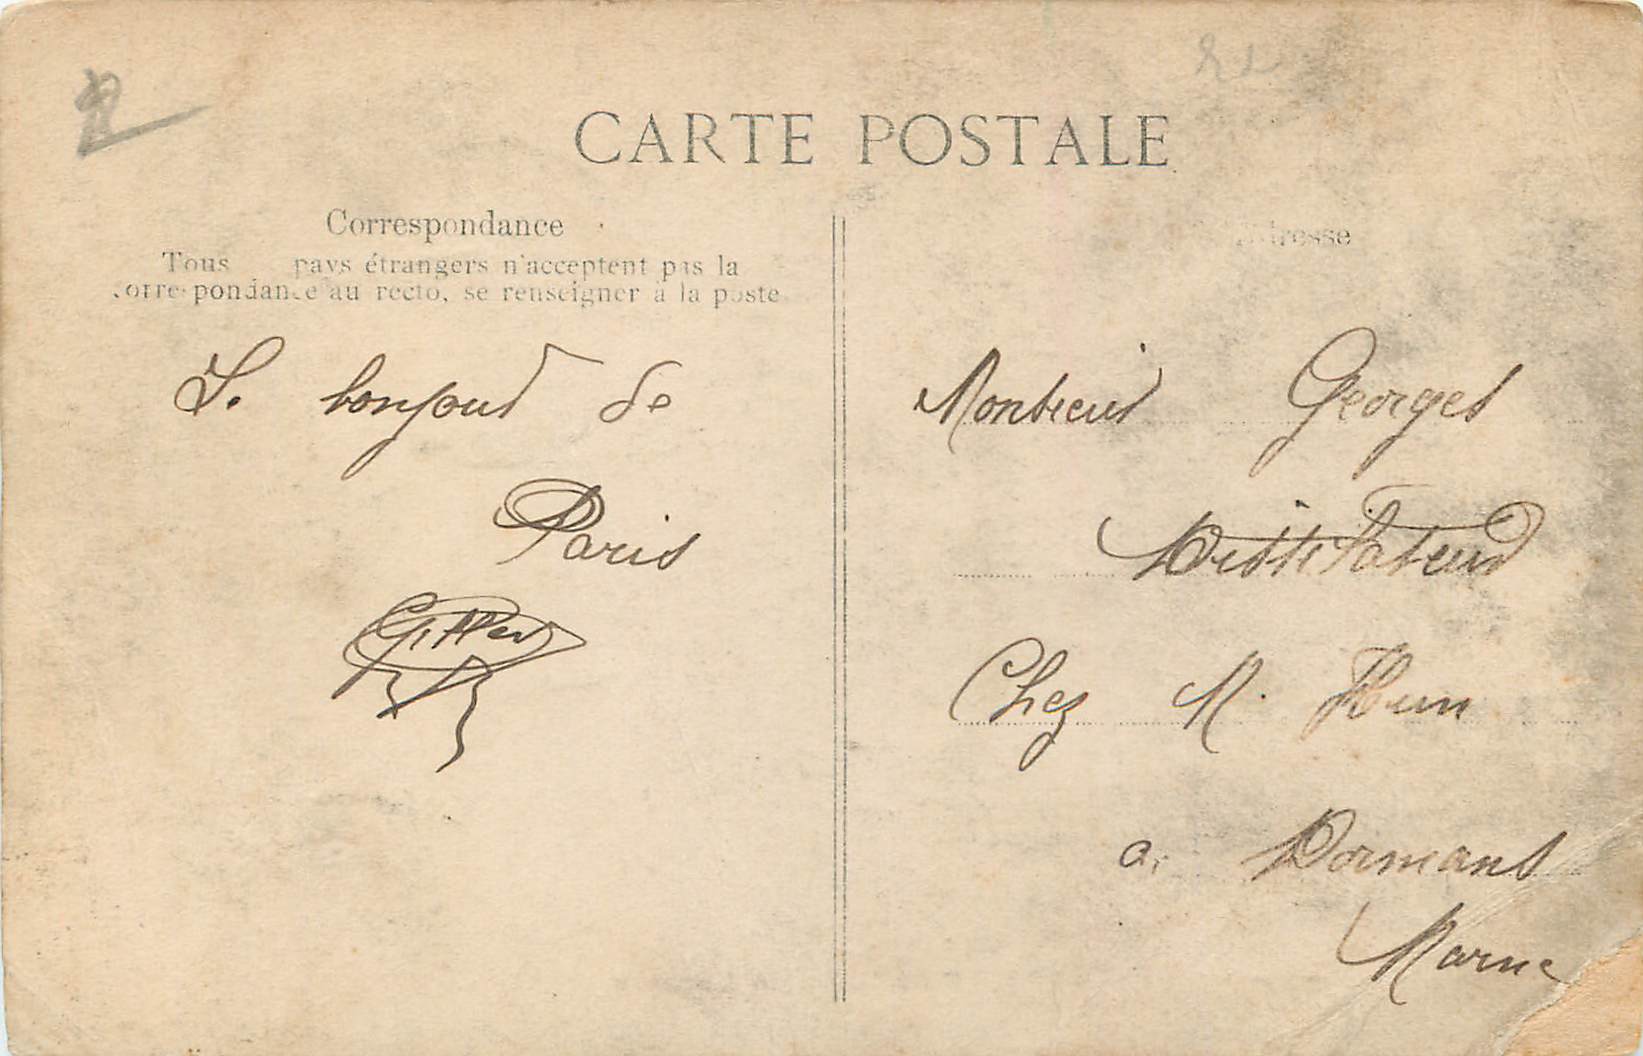 CARTE POSTALE
Correspondance
Tous pays étrangers n'acceptent pas la
correspondance au recto, se renseigner à la poste
Adresse
Le bonjour de
Paris
Monsieur Georges
Distillateur
Chez M. Hun
a Dormans
Marne